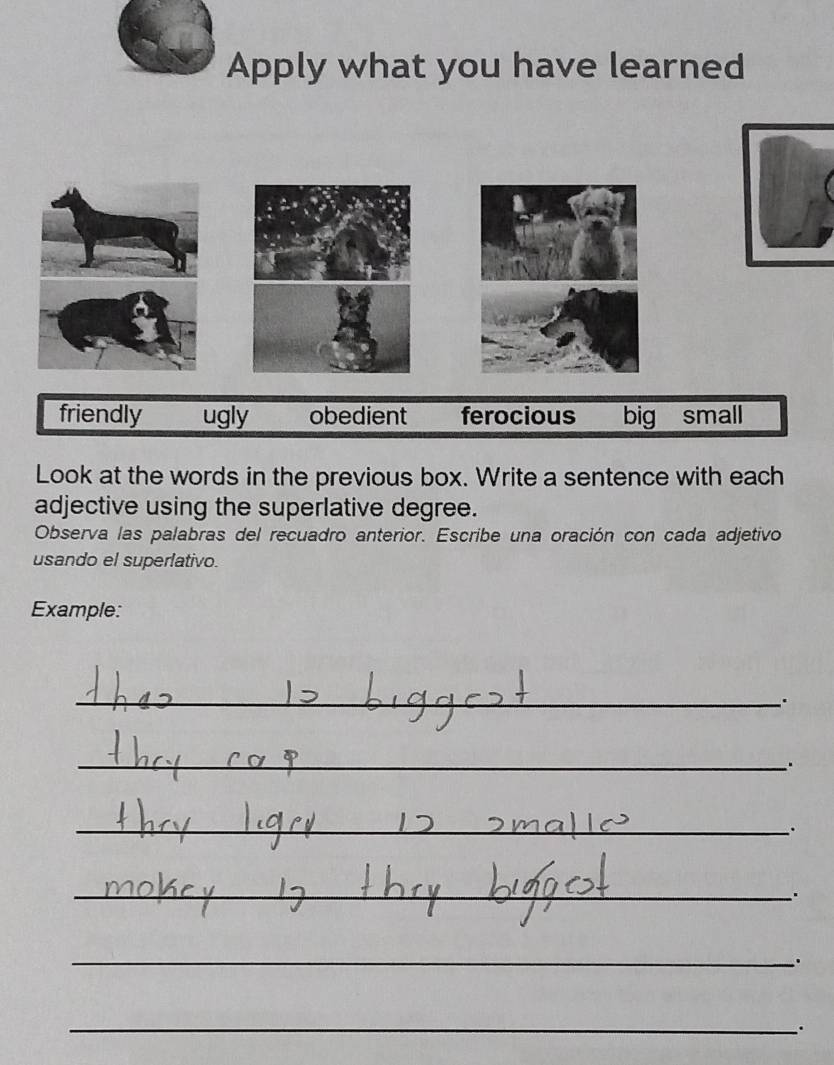 Apply what you have learned
friendly ugly obedient ferocious big small
Look at the words in the previous box. Write a sentence with each
adjective using the superlative degree.
Observa las palabras del recuadro anterior. Escribe una oración con cada adjetivo
usando el superlativo.
Example:
thas is biggest.
they cap.
they ligey is smalles.
mokey is they biggest.